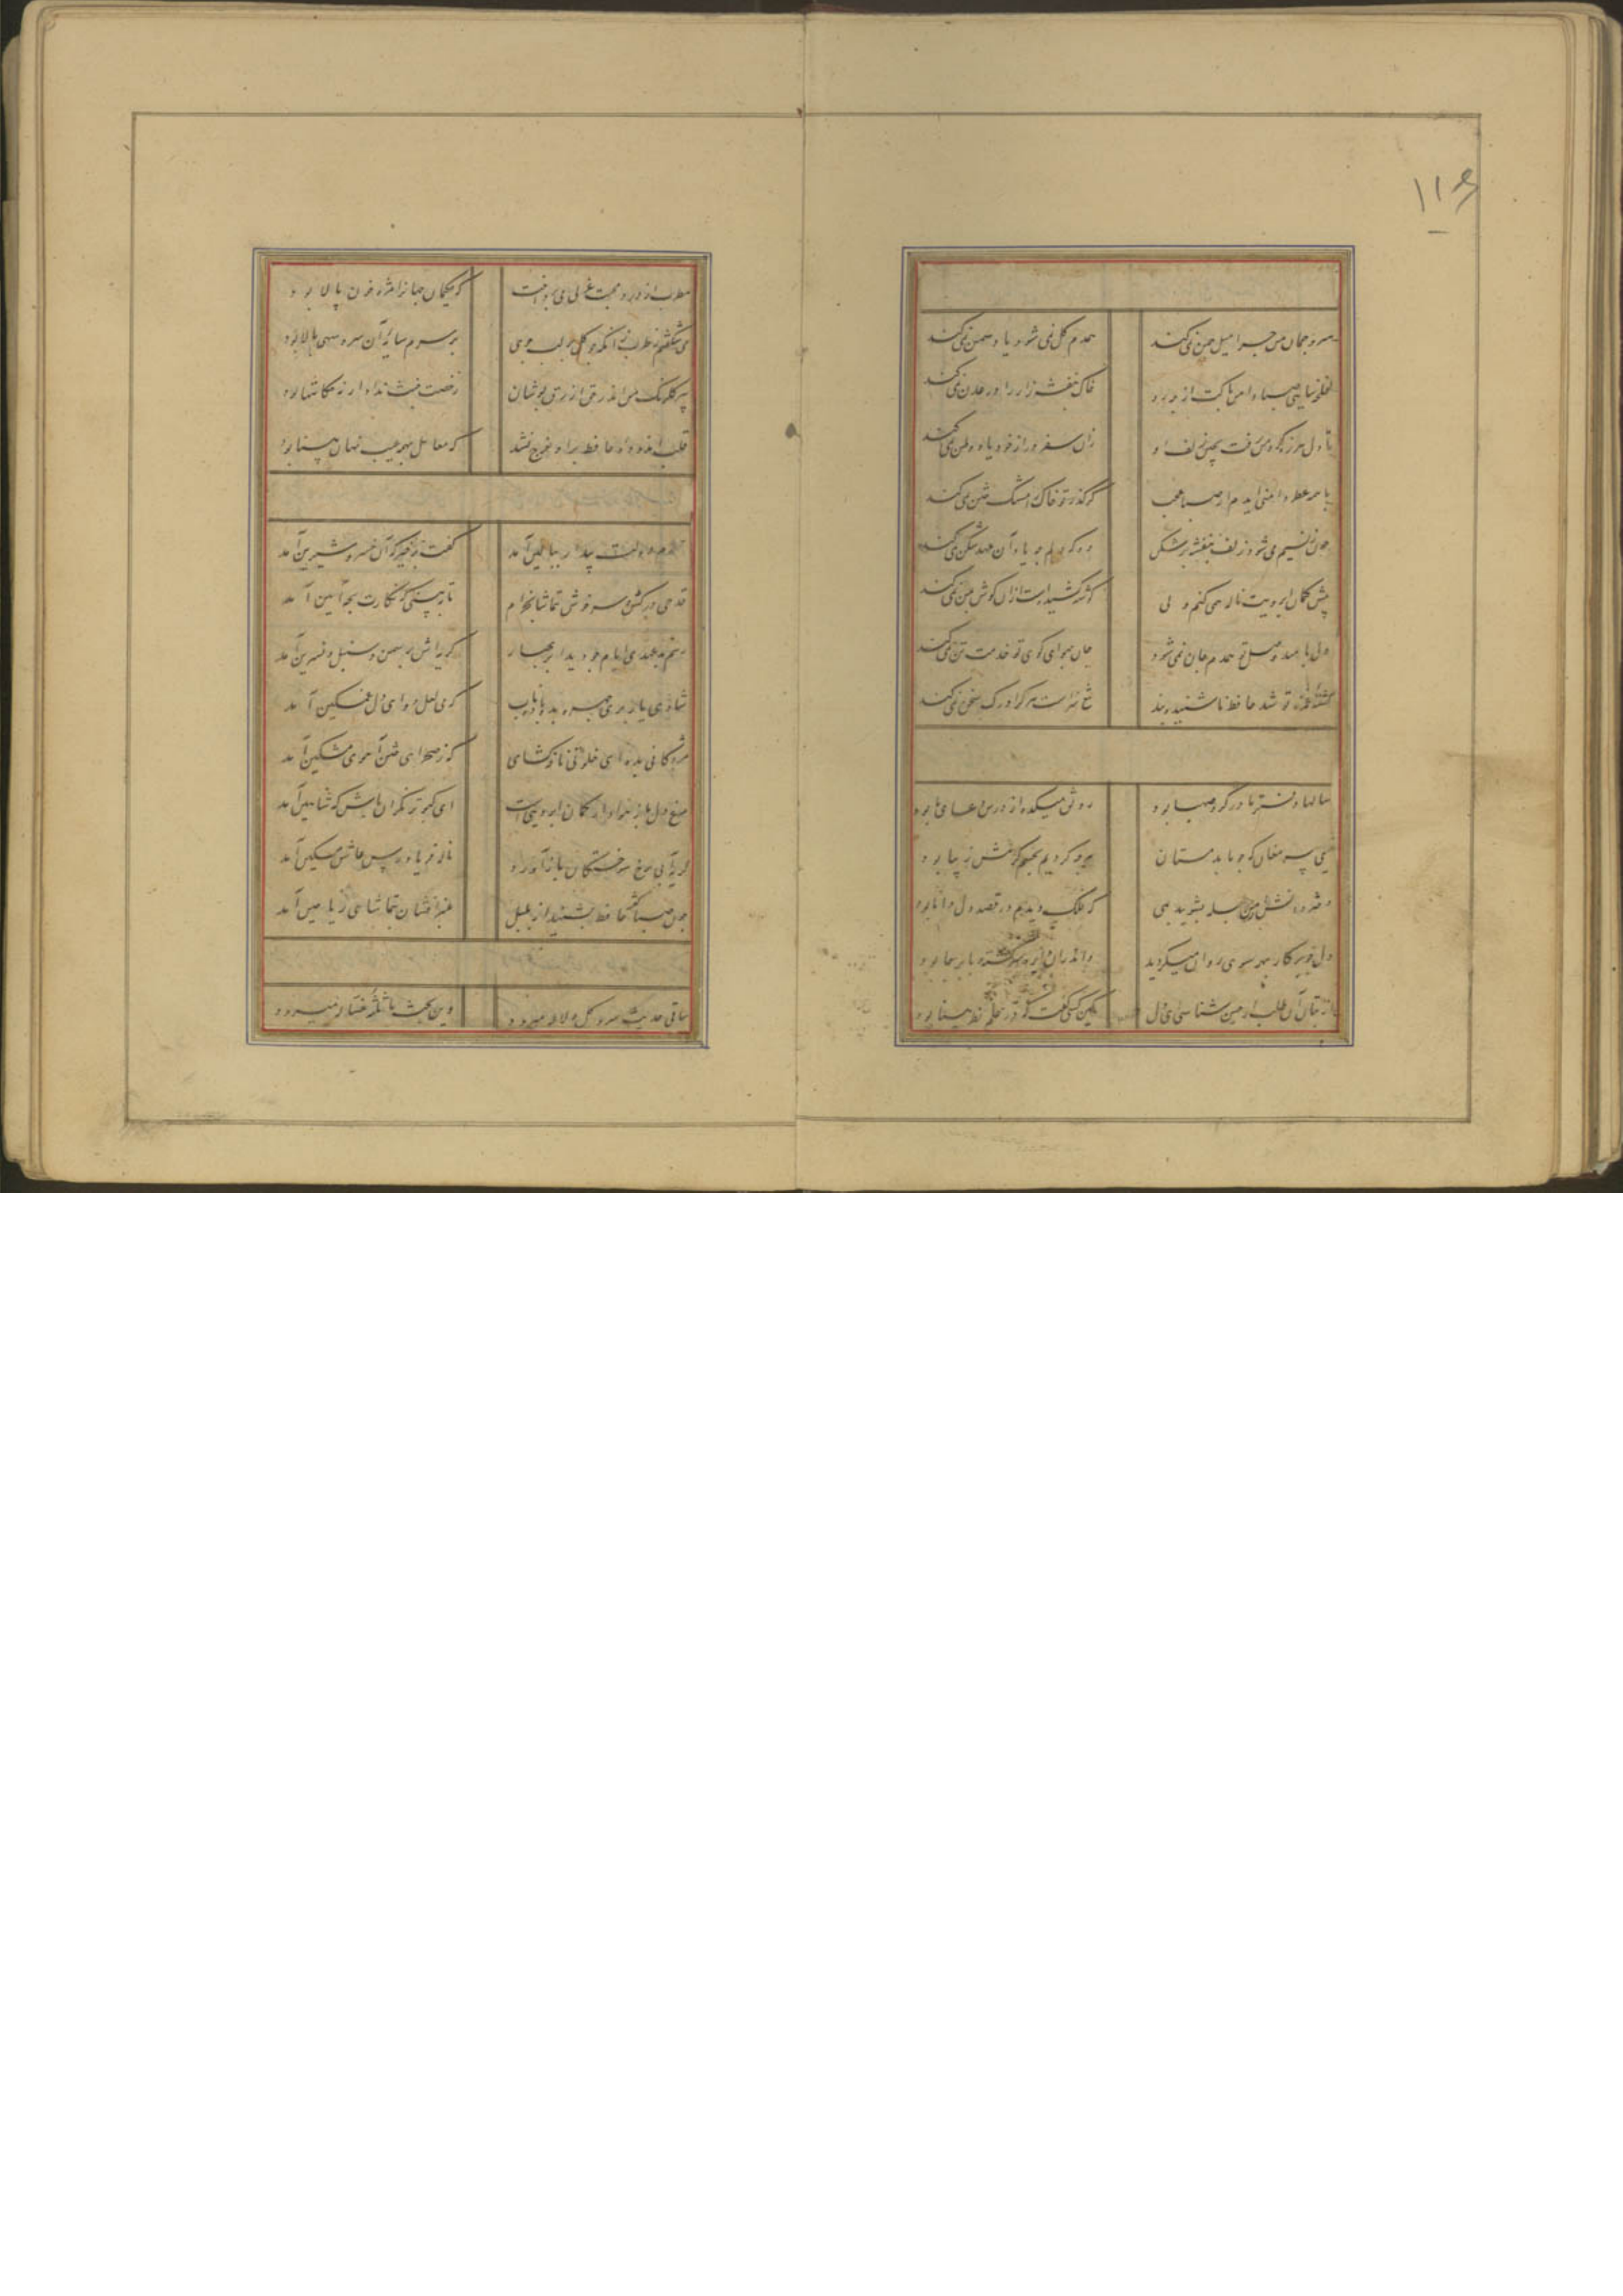 ۱۱۶
سرو چمان من چرا میل چمن نمی‌کند همدم گل نمی‌شود یاد سمن نمی‌کند
لخلخه سای صبا دامن پاکت از چه رو خاک بنفشه زار را در عدن نمی‌کند
تا دل هرزه گرد من رفت بچین زلف او زان سفر دراز خود یاد وطن نمی‌کند
با همه عطر دامنی آیدم از صبا عجب کز گذر تو خاک را مشک ختن نمی‌کند
چون ز نسیم می‌شود زلف بنفشه پرشکن وه که دلم چه یاد آن عهد شکن نمی‌کند
پیش کمان ابرویت ناله همی کنم ولی گوشه کشیده است ازان گوش بمن نمی‌کند
دل بامید وصل تو همدم جان نمی‌شود جان بهوای کوی تو خدمت تن نمی‌کند
کشته غمزه تو شد حافظ ناشنیده پند تیغ سزاست هر کرا درک سخن نمی‌کند
سالها دفتر ما در گرو صهبا بود رونق میکده از درس و دعای ما بود
نیکی پیر مغان که چو ما بدمستان هرچه کردیم بچشم کرمش زیبا بود
دفتر دانش ما جمله بشویید بمی که فلک دیدم و در قصد دل دانا بود
دل چو پرکار بهر سوی روان میگردید واندران دایره سرگشته پا برجا بود
از بتان آن طلب ار حسن شناسی ای دل کین کسی گفت که در علم نظر بینا بود
مطرب از درد محبت غزلی می پرداخت که حکیمان جهان را مژه خون پالا بود
می شکفتم ز طرب زانکه چو گل بر لب جوی بر سرم سایه آن سرو سهی بالا بود
پیر گلرنگ من اندر حق ازرق پوشان رخصت خبث نداد ار نه حکایتها بود
قلب اندوده حافظ بر او خرج نشد که معامل بهمه عیب نهان بینا بود
سحرم دولت بیدار ببالین آمد گفت برخیز که آن خسرو شیرین آمد
قدحی درکش و سرخوش بتماشا بخرام تا ببینی که نگارت بچه آیین آمد
رسم بدعهدی ایام چو دید ابر بهار گریه‌اش بر سمن و سنبل و نسرین آمد
شادی یار پری چهره بده باده ناب که می لعل دوای دل غمگین آمد
مژدگانی بده ای خلوتی نافه گشای که ز صحرای ختن آهوی مشکین آمد
مرغ دل باز هوادار کمان ابروییست ای کبوتر نگران باش که شاهین آمد
گریه آبی برخ سوختگان باز آورد ناله فریاد رس عاشق مسکین آمد
چون صبا گفته حافظ بشنید از بلبل عنبر افشان بتماشای ریاحین آمد
ساقی حدیث سرو و گل و لاله میرود وین بحث با ثلاثه غساله میرود